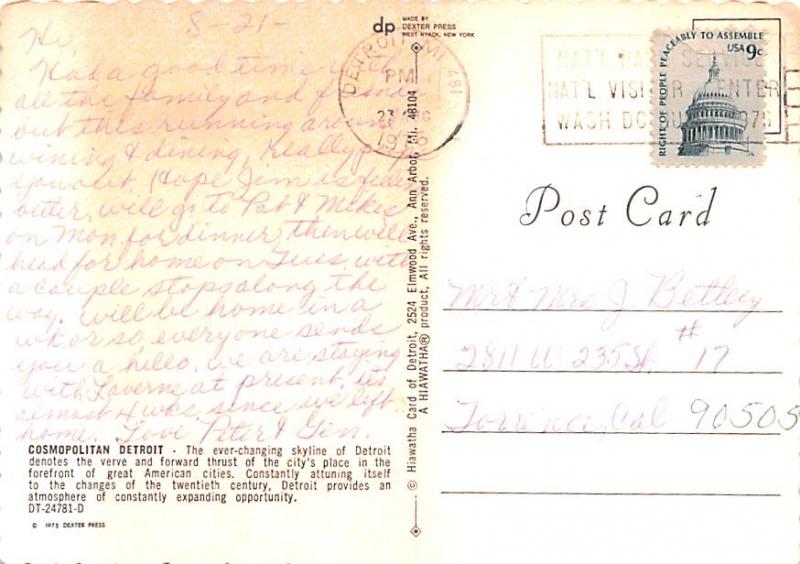 Hi, 8-21-
Had a good time with
all the family and friends
but this running around
wining & dining, really p
you out. Hope Jim is feeling
better, will go to Pat & Mikes
on Mon. for dinner, then will
head for home on Tues. with
a couple stops along the
way. will be home in a
wk or so, everyone sends
you a hello. we are staying
with Laverne at present, its
almost 4 wks. since we left
home. Love Peter & Gen.
COSMOPOLITAN DETROIT - The ever-changing skyline of Detroit
denotes the verve and forward thrust of the city's place in the
forefront of great American cities. Constantly attuning itself
to the changes of the twentieth century, Detroit provides an
atmosphere of constantly expanding opportunity.
DT-24781-D
© 1975 DEXTER PRESS
dp MADE BY
DEXTER PRESS
WEST NYACK, NEW YORK
© Hiawatha Card of Detroit, 2524 Elmwood Ave., Ann Arbor, MI. 48104
A HIAWATHA® product, All rights reserved.
DETROIT, MI 481
PM
23 AUG
1976
NAT'L PARK SERVICE
NAT'L VISITOR CENTER
WASH DC 1976
RIGHT OF PEOPLE PEACEABLY TO ASSEMBLE
USA 9c
Post Card
Mr & Mrs J. Betley
2811 W. 235 St. #17
Torrince, Cal 90505